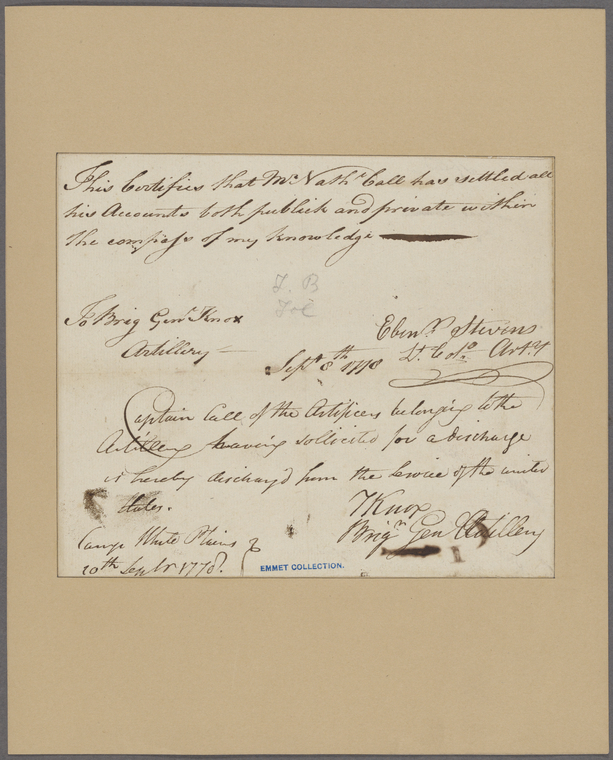 This Certifies that Mr. Nathl. Call has settled all
his Accounts both publick and private within
the compass of my knowledge
To Brig Genl. Knox
Artillery
Ebenr. Stevens
Lt. Colo. Arty
Septr. 8th 1778
Captain Call of the Artificers belonging to the
Artillery haveing sollicited for a discharge
is hereby discharg'd from the service of the united
states.
HKnox
Brigr. Gen Artillery
Camp White Plains
10th Septr 1778.
EMMET COLLECTION.